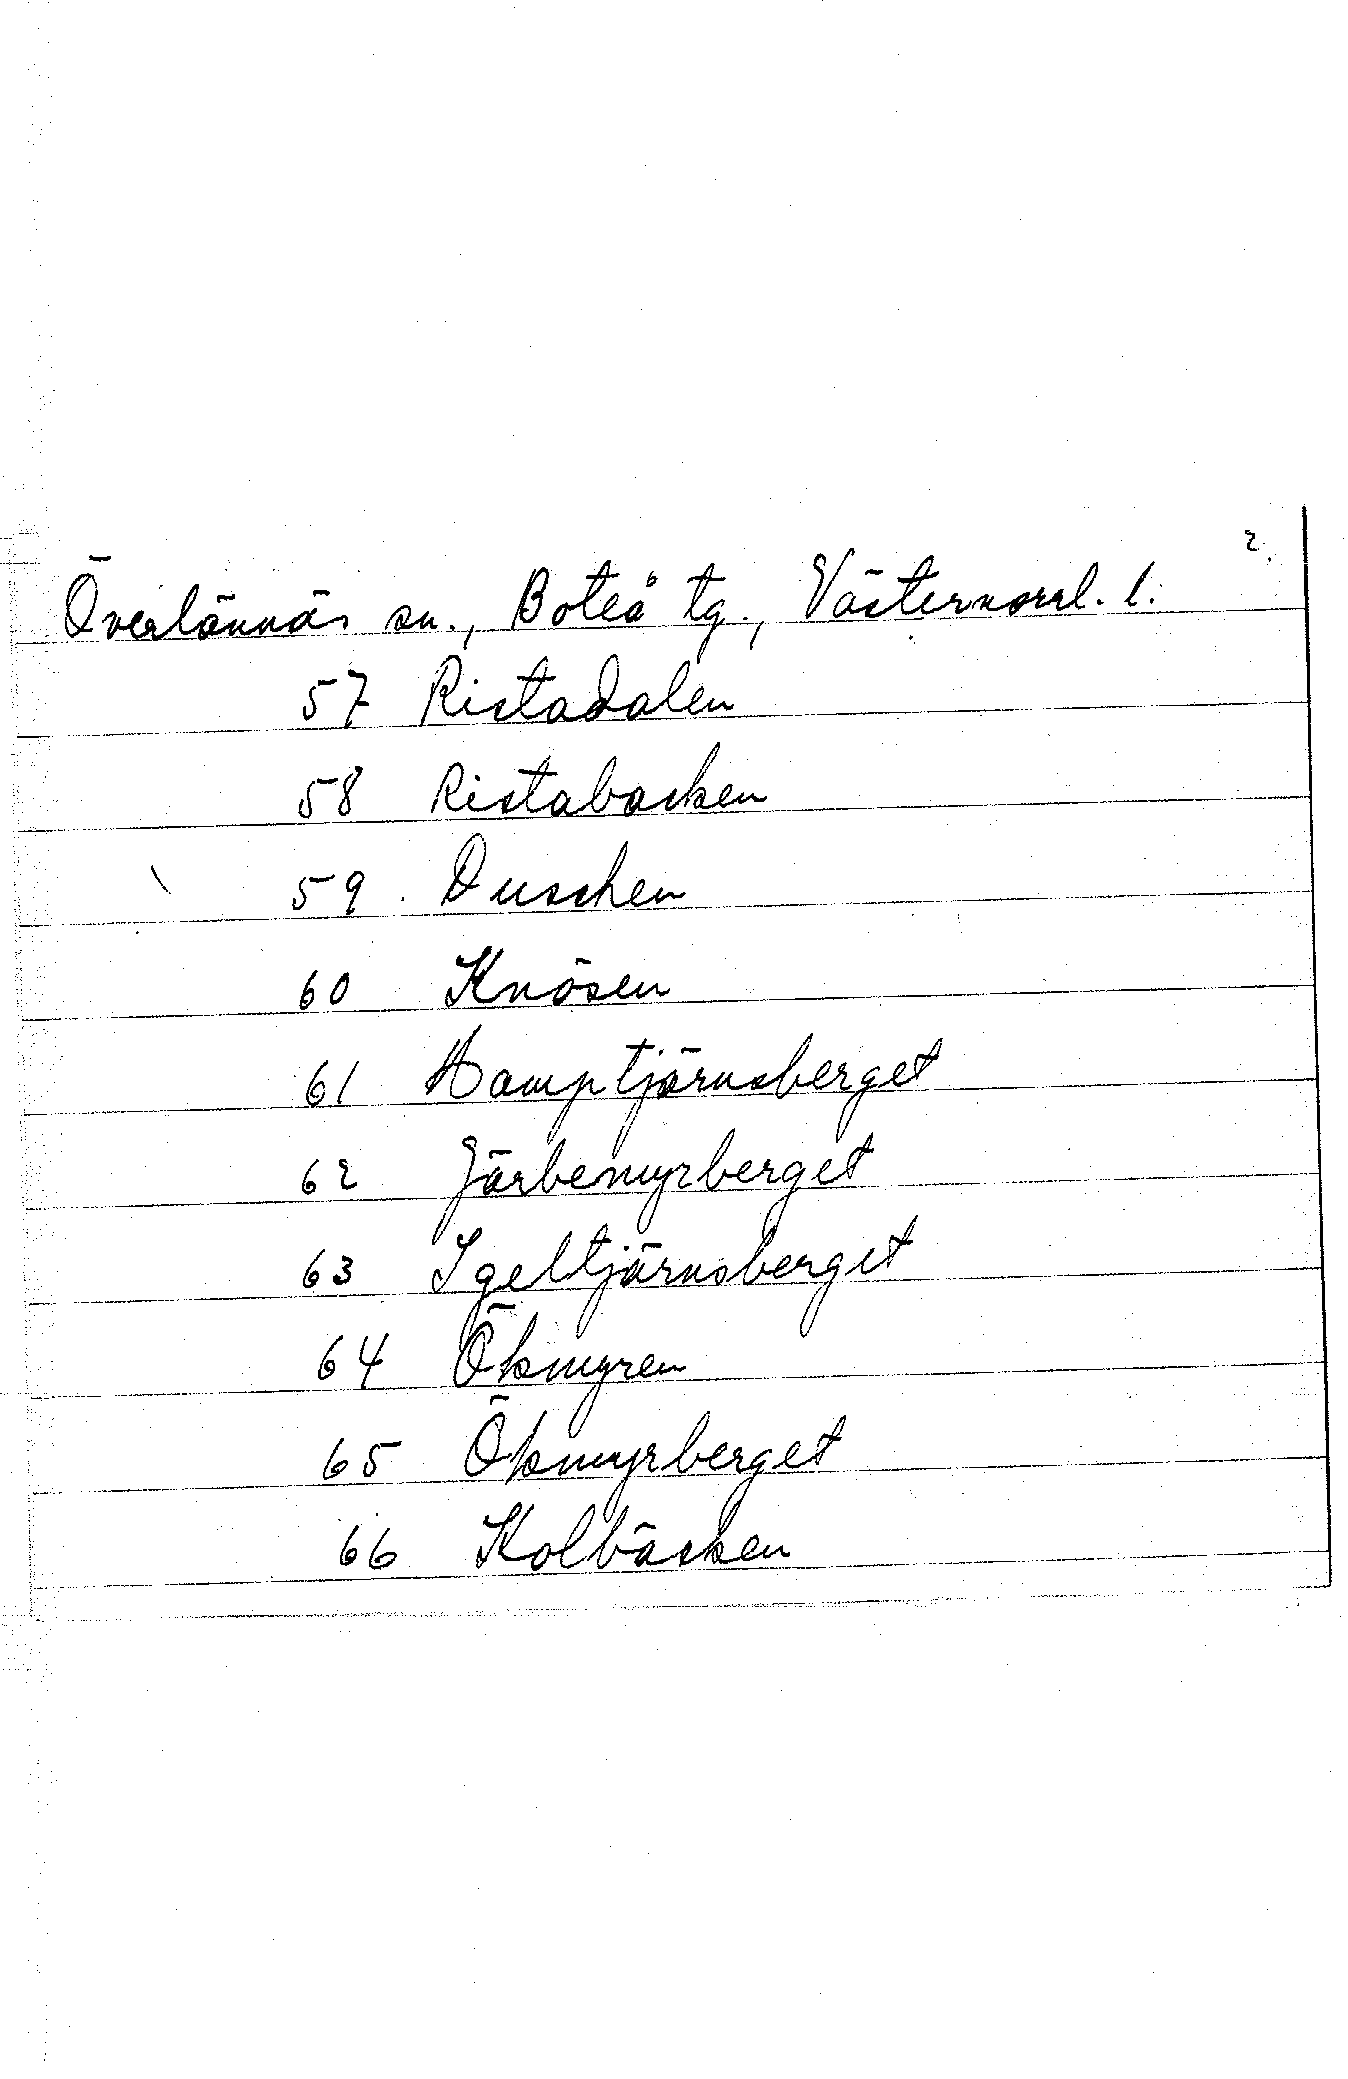 2.
Överlännäs sn., Boteå tg., Västernorrl. l.
57 Ristadalen
58 Ristabacken
59 Duschen
60 Knösen
61 Hamptjärnsberget
62 Järbemyrberget
63 Igeltjärnsberget
64 Ökmyren
65 Ökmyrberget
66 Kolbäcken